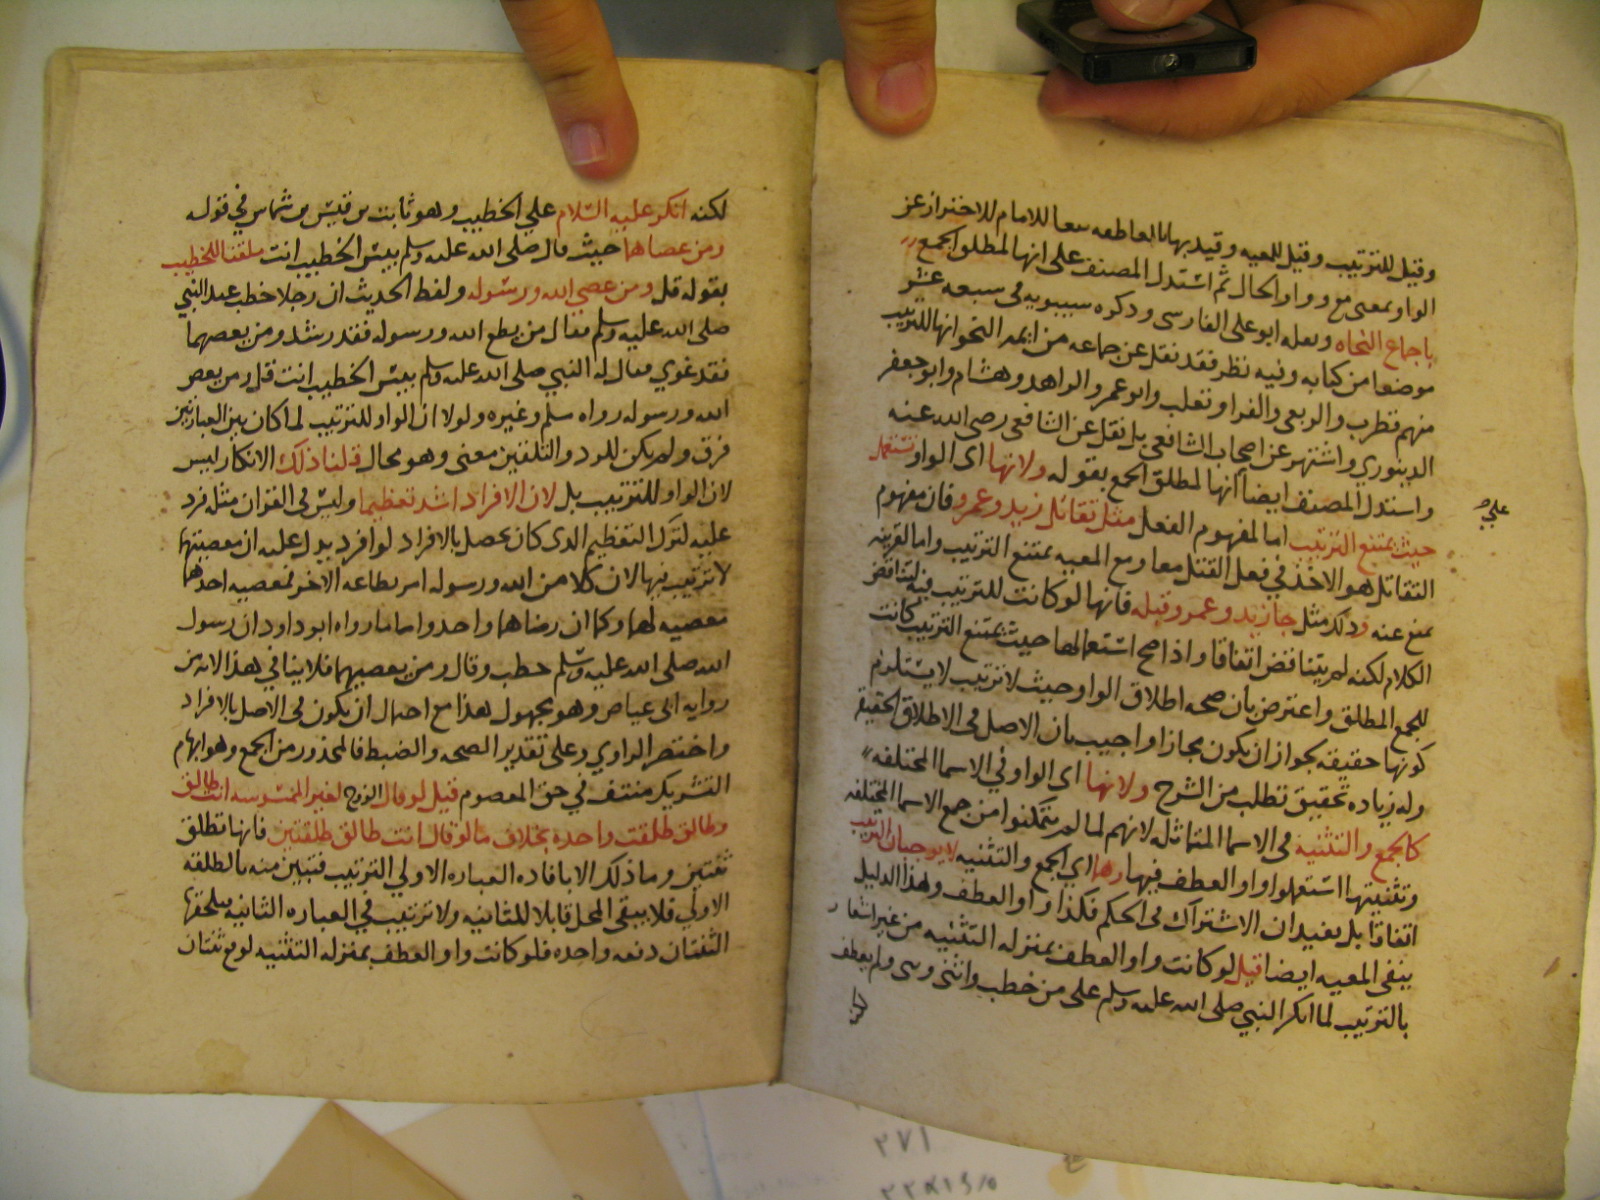 وقيل للترتيب وقيل للمعيه وقيد بها بالعاطفه تبعا للامام للاحتراز عن
الواو بمعنى مع وواو الحال ثم استدل المصنف على انها لمطلق الجمع
باجماع النحاه ونقله ابو على الفارسى وذكره سيبويه فى سبعه عشر
موضعا من كتابه وفيه نظر فقد نقل عن جماعه من ايمه النحو انها للترتيب
منهم قطرب والربعى والفرا وثعلب وابو عمرو الزاهد وهشام وابو جعفر
الدينوري واشتهر عن اصحاب الشافعي بل نقل عن الشافعى رضى الله عنه
واستدل المصنف ايضا انها لمطلق الجمع بقوله ولانها اى الواو تستعمل
حيث يمتنع الترتيب اما لمفهوم الفعل مثل تقاتل زيد وعمرو فان مفهوم
التقاتل هو الاخذ في فعل القتل معا ومع المعيه يمتنع الترتيب واما لقرينه
تمنع عنه وذلك مثل جا زيد وعمرو قبله فانها لو كانت للترتيب فيه لتناقض
الكلام لكنه لم يتناقض اتفاقا واذا صح استعمالها حيث يمتنع الترتيب كانت
للجمع المطلق واعترض بان صحه اطلاق الواو حيث لا ترتيب لا يستلزم
كونها حقيقه بجواز ان يكون مجازا واجيب بان الاصل فى الاطلاق الحقيقه
وله زياده تحقيق تطلب من الشرح ولانها اى الواو في الاسما المختلفه
كالجمع والتثنيه فى الاسما المتماثله لانهم لما لم يتمكنوا من جمع الاسما المختلفه
وتثنيتها استعملوا واو العطف فيها وهما اي الجمع والتثنيه لا يوجبان الترتيب
اتفاقا بل يفيدان الاشتراك فى الحكم فكذا واو العطف وهذا الدليل
ينفى المعيه ايضا قيل لو كانت واو العطف بمنزله التثنيه من غير اشعار
بالترتيب لما انكر النبي صلى الله عليه وسلم على من خطب واثنى ولم يعطف
على
لكنه
لكنه انكر عليه السلام علي الخطيب وهو ثابت بن قيس بن شماس في قوله
ومن عصاهما حيث قال صلى الله عليه وسلم بيس الخطيب انت ملقنا للخطيب
بقوله قل ومن عصى الله ورسوله ولفظ الحديث ان رجلا خطب عند النبي
صلى الله عليه وسلم فقال من يطع الله ورسوله فقد رشد ومن يعصهما
فقد غوي فقال له النبي صلى الله عليه وسلم بيس الخطيب انت قل ومن يعص
الله ورسوله رواه مسلم وغيره ولولا ان الواو للترتيب لما كان بين العبارتين
فرق ولم يكن للرد والتلقين معنى وهو محال قلنا ذلك الانكار ليس
لان الواو للترتيب بل لان الافراد اشد تعظيما وليس فى القران مثله فرد
عليه لترك التعظيم الذى كان يحصل بالافراد لو افرد يدل عليه ان معصيتهما
لا ترتيب فيها لان كلا من الله ورسوله امر بطاعه الاخر فمعصيه احدهما
معصيه لهما وكما ان رضاهما واحد واما ما رواه ابو داود ان رسول
الله صلى الله عليه وسلم خطب وقال ومن يعصهما فلا ينافي هذا لانه من
روايه ابى عياض وهو مجهول هذا مع احتمال ان يكون فى الاصل بالافراد
واختصر الراوي وعلى تقدير الصحه والضبط فالمحذور من الجمع وهو ايهام
التشريك منتف في حق المعصوم قيل لو قال الزوج لغير الممسوسه انت طالق
وطالق طلقت واحده بخلاف ما لو قال انت طالق طلقتين فانها تطلق
ثنتين وما ذلك الا بافاده العباره الاولي الترتيب فتبين منه بالطلقه
الاولي فلا يبقى المحل قابلا للثانيه ولا ترتيب في العباره الثانيه فيلحقها
الثنتان دفعه واحده فلو كانت واو العطف بمنزله التثنيه لوقع ثنتان
٢٧١